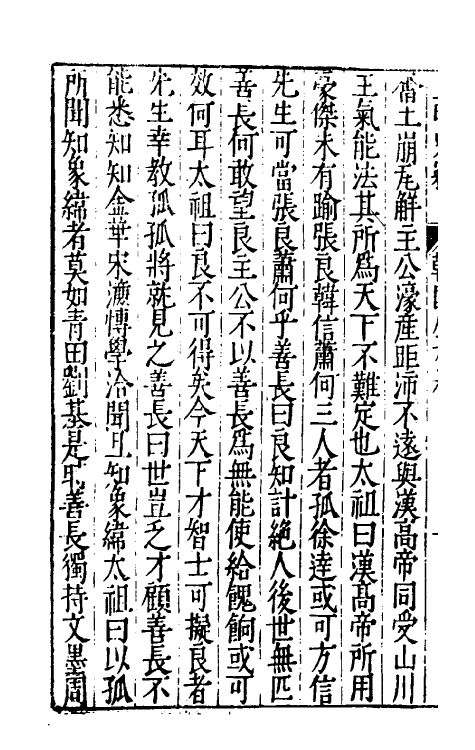 當土崩瓦觧主公濠産距沛不遠與漢髙帝同受山川
王氣能法其所爲天下不難定也太祖曰漢髙帝所用
豪傑未有踰張良韓信蕭何三人者孤徐達或可方信
先生可當張良蕭何乎善長曰良知計絶人後世無匹
善長何敢望良主公不以善長爲無能使給餽餉或可
效何耳太祖曰良不可得矣今天下才智士可擬良者
先生幸教孤孤將就見之善長曰世豈乏才顧善長不
能悉知知金華宋濂慱學洽聞且知象緯太祖曰以孤
所聞知象緯者莫如青田劉基是耶善長獨持文墨周